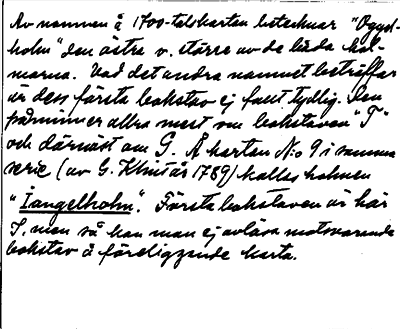 Av namnen å 1700-talskartan betecknar "Oggel-
holm" den östra o. större av de båda hol-
marna. Vad det andra namnet beträffar
är dess första bokstav ej fullt tydlig. Den
påminner allra mest om bokstaven "T"
och därnäst om G. Å kartan N:o 9 i samma
serie (av G. 1789) kallas holmen
"Iangelholm". Första bokstaven är här
I, men så kan man ej avläsa motsvarande
bokstav å föreliggande karta.